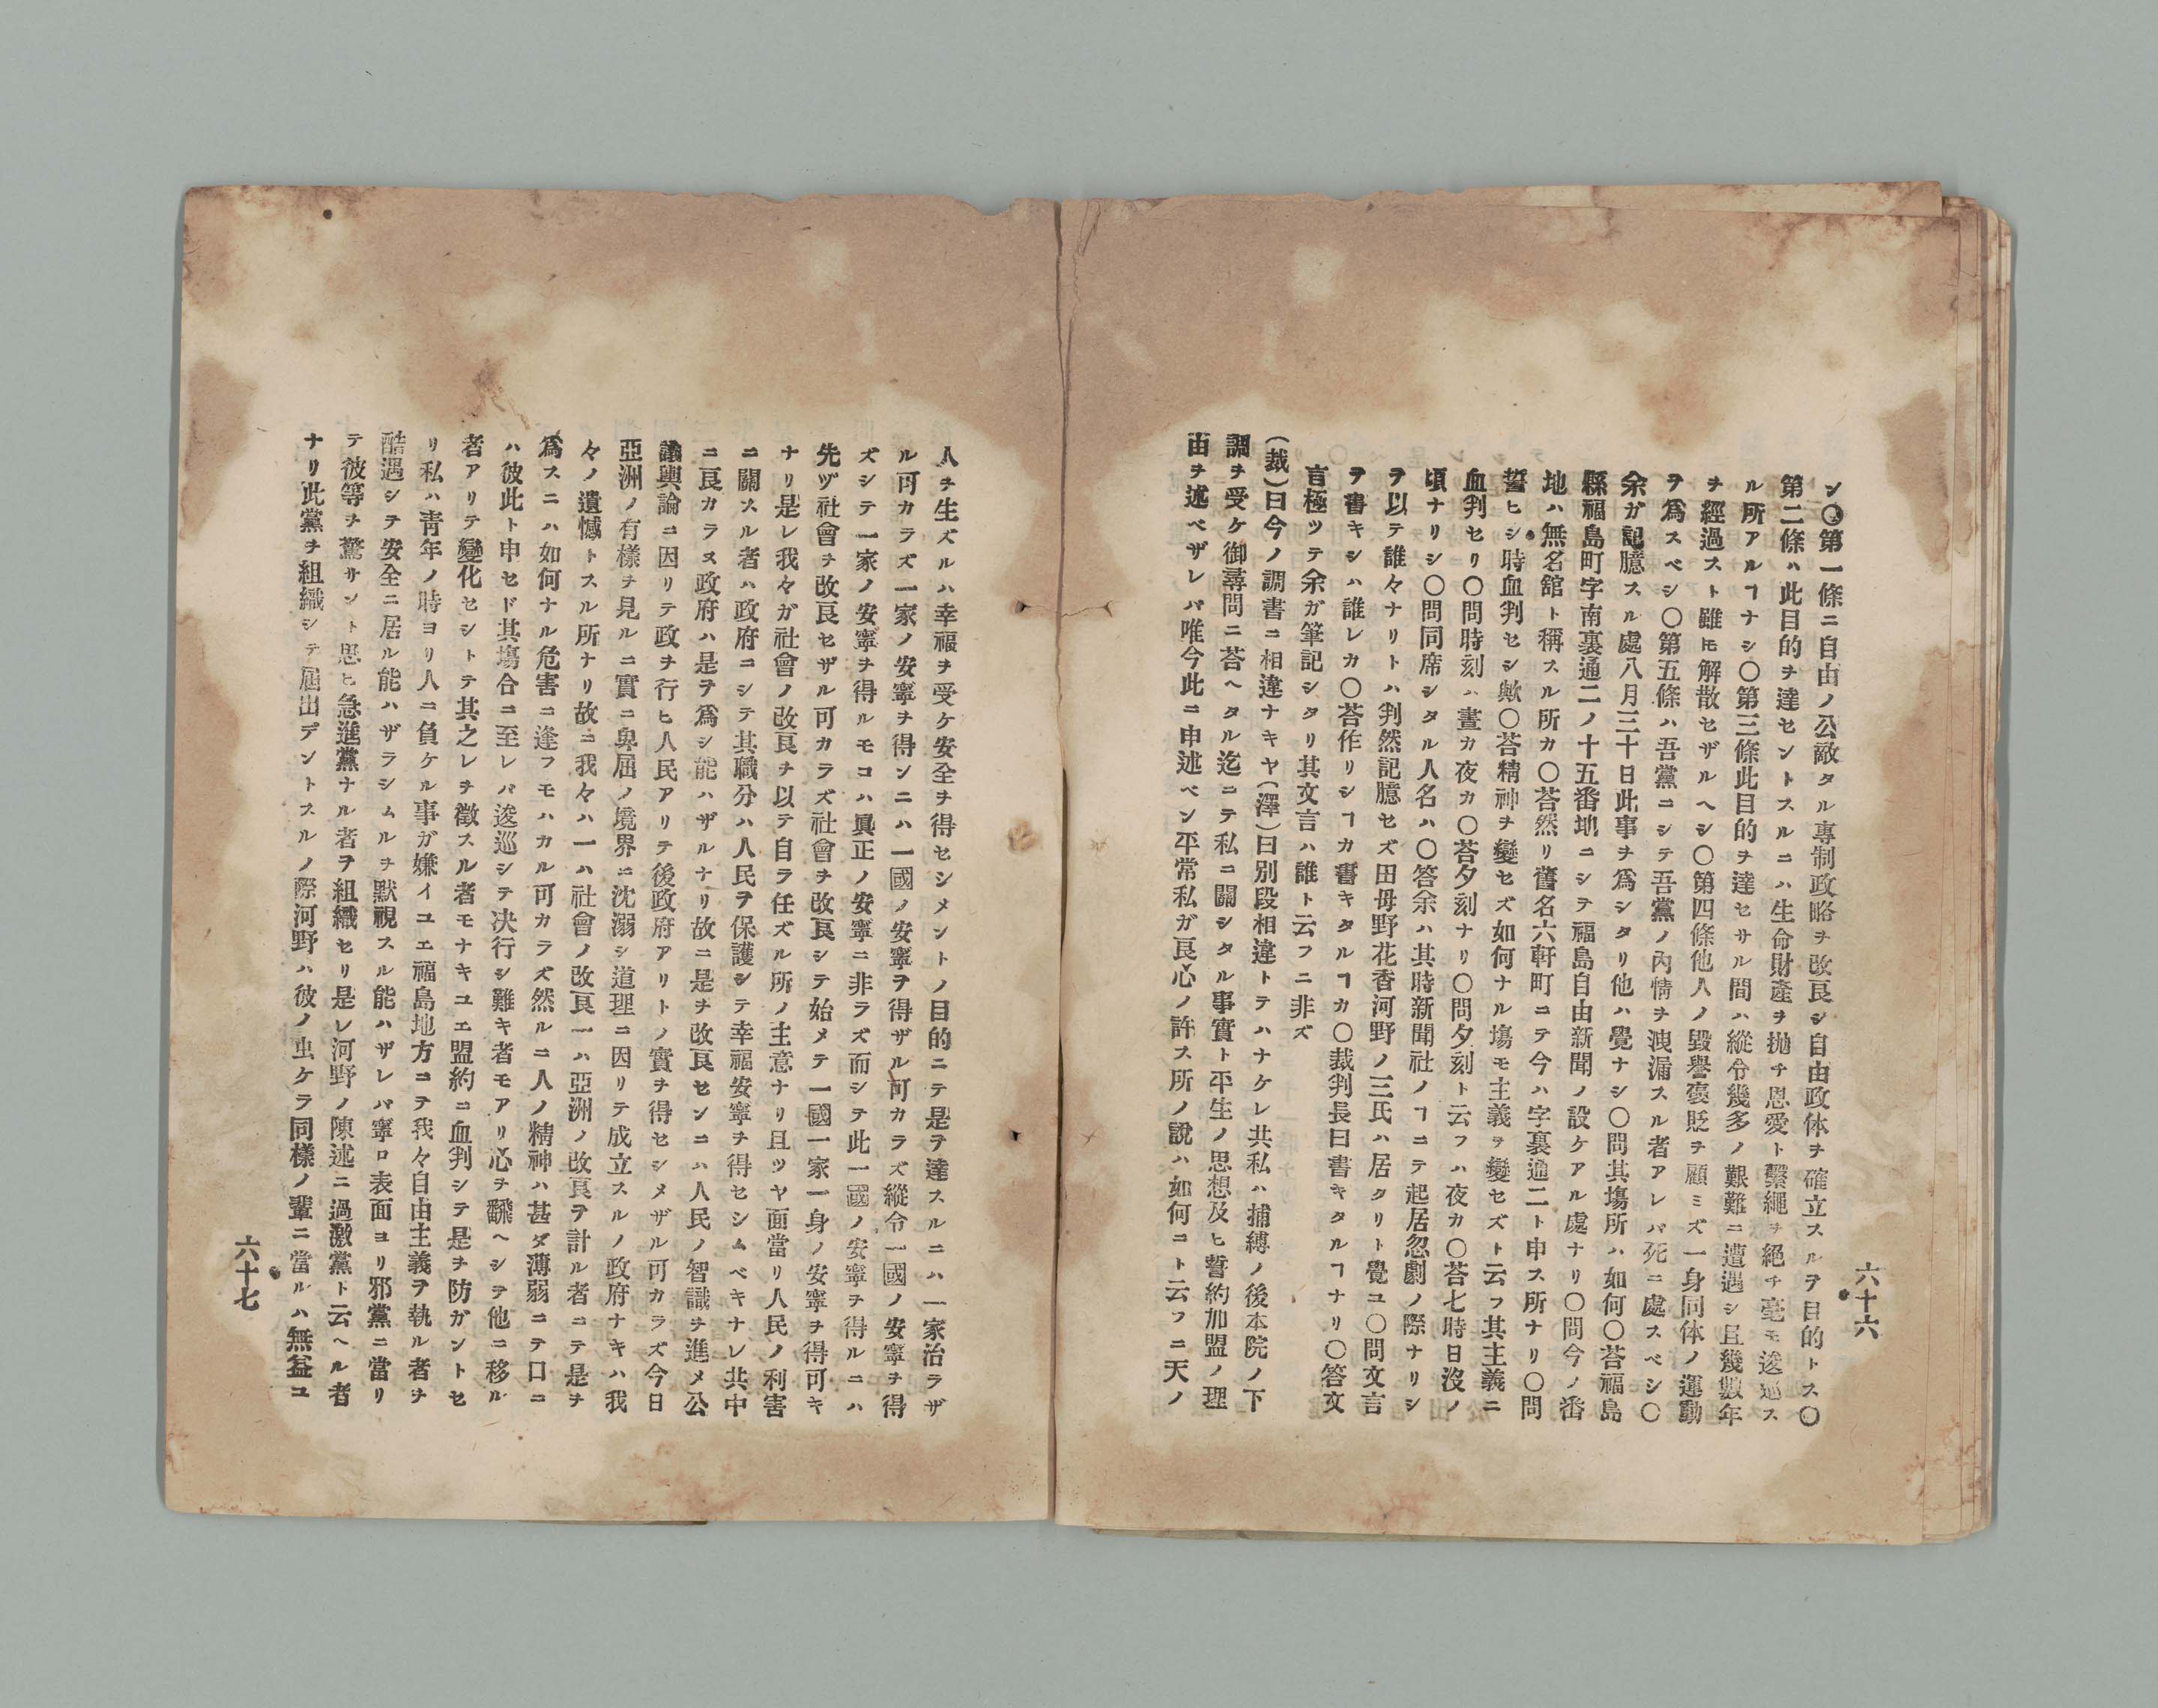 六十六
ン〇第一條ニ自由ノ公敵タル專制政略ヲ改良シ自由政体ヲ確立スルヲ目的トス〇
第二條ハ此目的ヲ達セントスルニハ生命財產ヲ抛チ恩愛ト繫繩ヲ絕チ毫モ逡巡ス
ル所アルヿナシ〇第三條此目的ヲ達セサル間ハ縱令幾多ノ艱難ニ遭遇シ且幾數年
ヲ經過スト雖モ解散セザルヘシ〇第四條他人ノ毀譽褒貶ヲ顧ミズ一身同体ノ運動
ヲ爲スベシ〇第五條ハ吾黨ニシテ吾黨ノ內情ヲ洩漏スル者アレバ死ニ處スベシ〇
余ガ記臆スル處八月三十日此事ヲ爲シタリ他ハ覺ナシ〇問其塲所ハ如何〇荅福島
縣福島町字南裏通二ノ十五番地ニシテ福島自由新聞ノ設ケアル處ナリ〇問今ノ番
地ハ無名舘ト稱スル所カ〇荅然リ舊名六軒町ニテ今ハ字裏通二ト申ス所ナリ〇問
誓ヒシ時血判セシ歟〇荅精神ヲ變セズ如何ナル塲モ主義ヲ變セズト云フ其主義ニ
血判セリ〇問時刻ハ晝カ夜カ〇荅夕刻ナリ〇問夕刻ト云フハ夜カ〇荅七時日沒ノ
頃ナリシ〇問同席シタル人名ハ〇答余ハ其時新聞社ノヿニテ起居忽劇ノ際ナリシ
ヲ以テ誰々ナリトハ判然記臆セズ田母野花香河野ノ三氏ハ居タリト覺ユ〇問文言
ヲ書キシハ誰レカ〇荅作リシヿカ書キタルヿカ〇裁判長曰書キタルヿナリ〇答文
言極ツテ余ガ筆記シタリ其文言ハ誰ト云フニ非ズ
(裁)曰今ノ調書ニ相違ナキヤ(澤)曰別段相違トテハナケレ共私ハ捕縛ノ後本院ノ下
調ヲ受ケ御尋問ニ荅ヘタル迄ニテ私ニ關シタル事實ト平生ノ思想及ヒ誓約加盟ノ理
由ヲ述ベザレバ唯今此ニ申述ベン平常私ガ良心ノ許ス所ノ說ハ如何ニト云フニ天ノ
人ヲ生ズルハ幸福ヲ受ケ安全ヲ得セシメントノ目的ニテ是ヲ達スルニハ一家治ラザ
ル可カラズ一家ノ安寧ヲ得ンニハ一國ノ安寧ヲ得ザル可カラズ縱令一國ノ安寧ヲ得
ズシテ一家ノ安寧ヲ得ルモコハ眞正ノ安寧ニ非ラズ而シテ此一國ノ安寧ヲ得ルニハ
先ヅ社會ヲ改良セザル可カラズ社會ヲ改良シテ始メテ一國一家一身ノ安寧ヲ得可キ
ナリ是レ我々ガ社會ノ改良ヲ以テ自ラ任ズル所ノ主意ナリ且ツヤ面當リ人民ノ利害
ニ關スル者ハ政府ニシテ其職分ハ人民ヲ保護シテ幸福安寧ヲ得セシムベキナレ共中
ニ良カラヌ政府ハ是ヲ爲シ能ハザルナリ故ニ是ヲ改良センニハ人民ノ智識ヲ進メ公
議輿論ニ因リテ政ヲ行ヒ人民アリテ後政府アリトノ實ヲ得セシメザル可カラズ今日
亞洲ノ有樣ヲ見ルニ實ニ卑屈ノ境界ニ沈溺シ道理ニ因リテ成立スルノ政府ナキハ我
々ノ遺憾トスル所ナリ故ニ我々ハ一ハ社會ノ改良一ハ亞洲ノ改良ヲ計ル者ニテ是ヲ
爲スニハ如何ナル危害ニ逢フモハカル可カラズ然ルニ人ノ精神ハ甚ダ薄弱ニテ口ニ
ハ彼此ト申セド其塲合ニ至レバ逡巡シテ决行シ難キ者モアリ心ヲ飜ヘシテ他ニ移ル
者アリテ變化セシトテ其之レヲ徵スル者モナキユエ盟約ニ血判シテ是ヲ防ガントセ
リ私ハ靑年ノ時ヨリ人ニ負ケル事ガ嫌イユエ福島地方ニテ我々自由主義ヲ執ル者ヲ
酷遇シテ安全ニ居ル能ハザラシムルヲ默視スル能ハザレバ寧ロ表面ヨリ邪黨ニ當リ
テ彼等ヲ驚サント思ヒ急進黨ナル者ヲ組織セリ是レ河野ノ陳述ニ過激黨ト云ヘル者
ナリ此黨ヲ組織シテ屆出デントスルノ際河野ハ彼ノ虫ケラ同樣ノ輩ニ當ルハ無益ユ
六十七